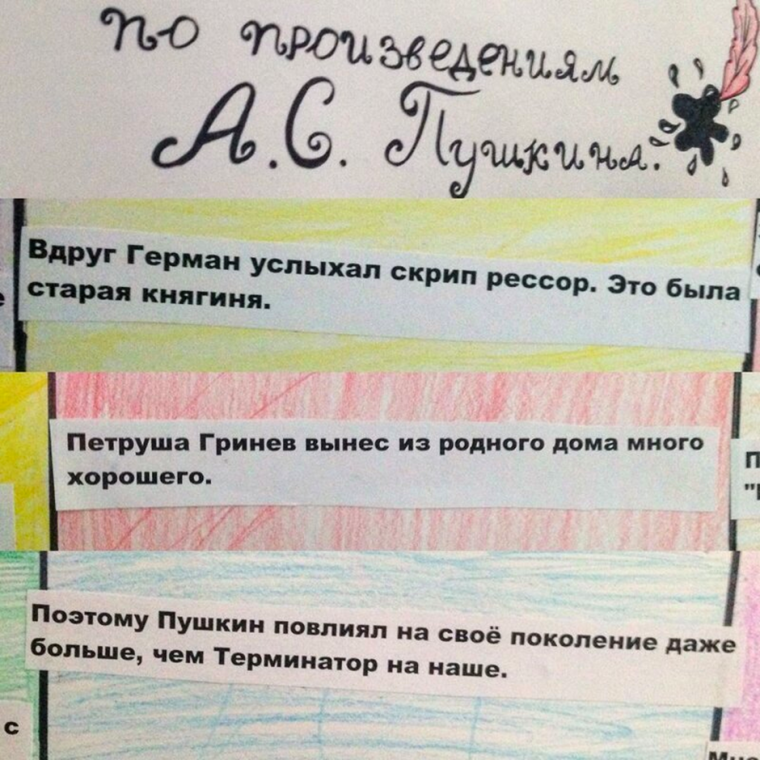 по произведениям
А.С. Пушкина.
Вдруг Герман услыхал скрип рессор. Это была
старая княгиня.
Петруша Гринев вынес из родного дома много
хорошего.
Поэтому Пушкин повлиял на своё поколение даже
больше, чем Терминатор на наше.
с